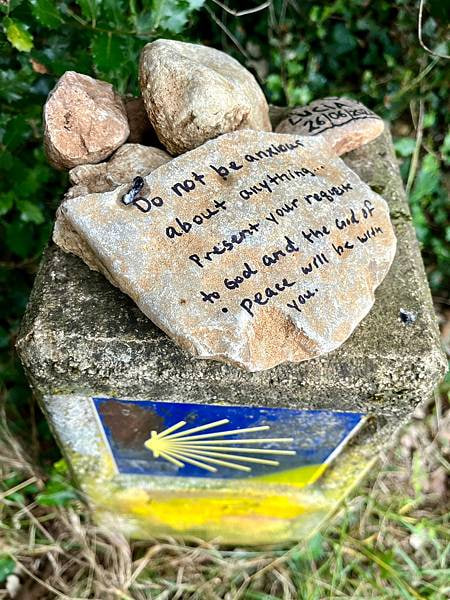 LUCIA
Do not be anxious
about anything..
Present your request
to God and the God of
. Peace will be with
you.